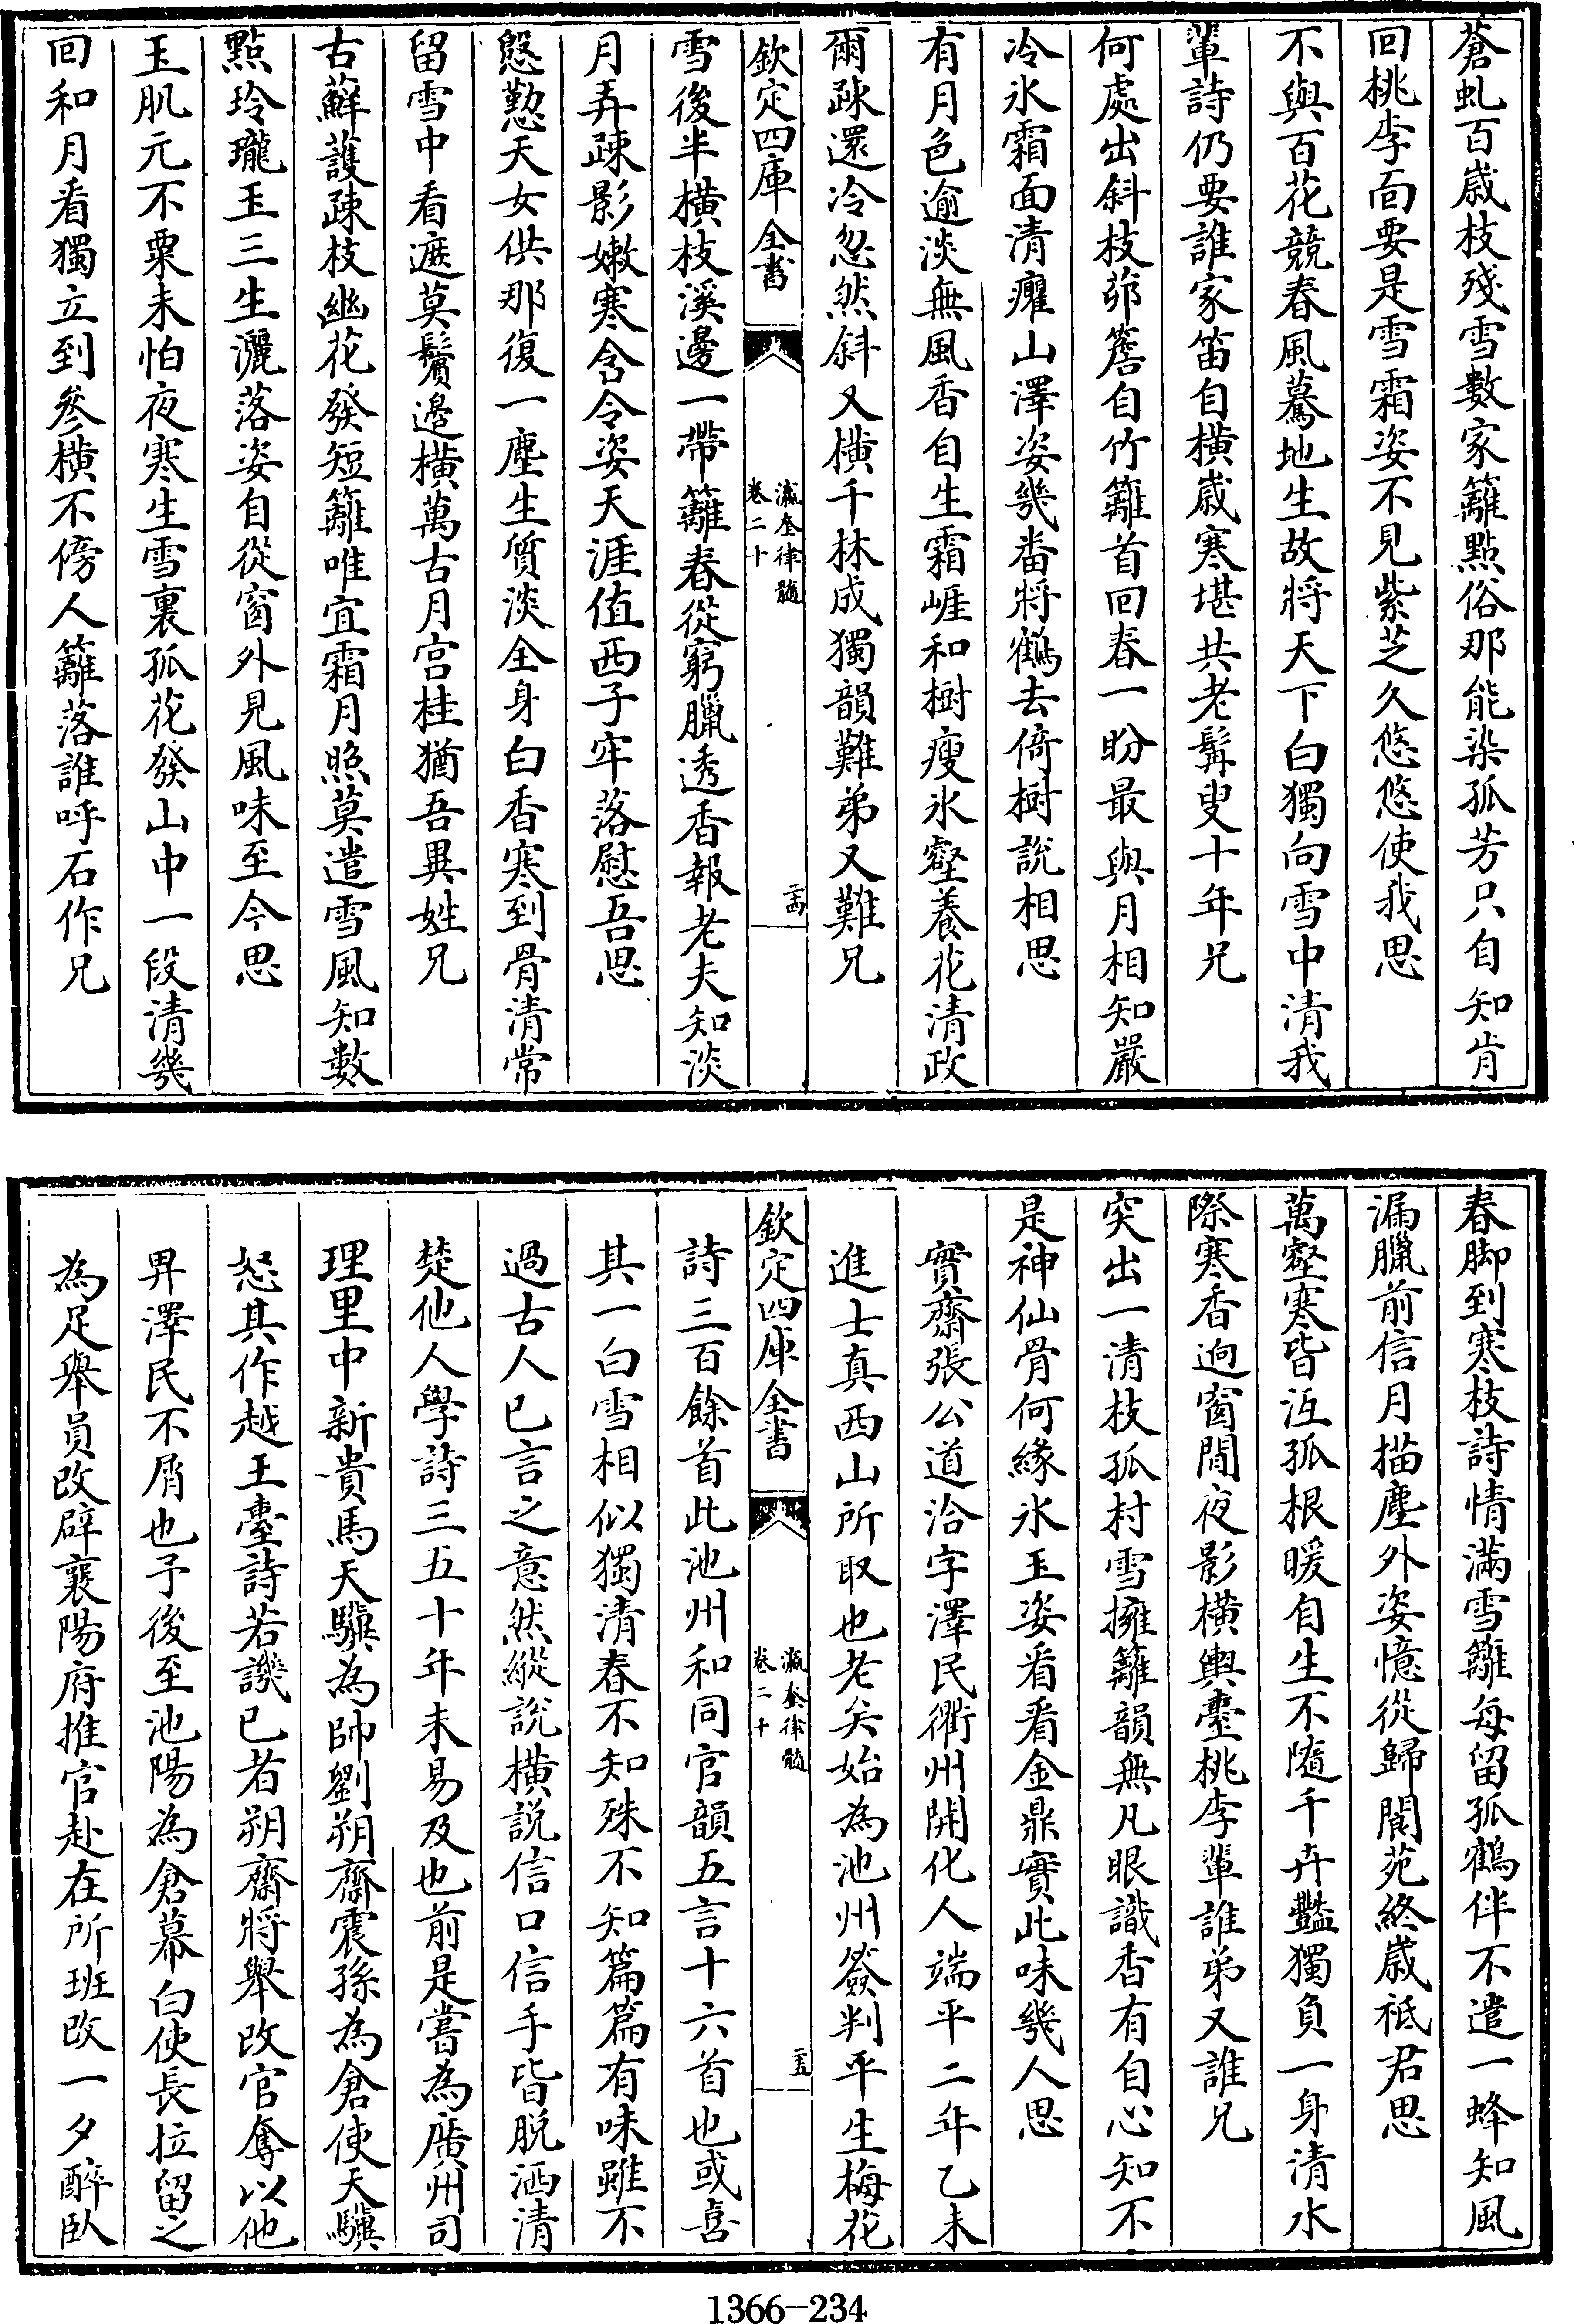 蒼虬百歲枝殘雪數家籬點俗那能染孤芳只自知肯
回桃李面要是雪霜姿不見紫芝久悠悠使我思
不與百花競春風驀地生故將天下白獨向雪中清我
輩詩仍要誰家笛自橫歲寒堪共老髯叟十年兄
何處出斜枝茆簷自竹籬首回春一盼最與月相知嚴
冷氷霜面清癯山澤姿幾畨將鶴去倚樹說相思
有月色逾淡無風香自生霜崕和樹瘦氷壑養花清政
爾疎還冷忽然斜又橫千林成獨韻難弟又難兄
欽定四庫全書
瀛奎律髓
卷二十
二十四
雪後半橫枝溪邊一帶籬春從窮臘透香報老夫知淡
月弄疎影嫩寒含令姿天涯值西子牢落慰吾思
慇懃天女供那復一塵生質淡全身白香寒到骨清常
留雪中看遮莫鬢邊橫萬古月宫桂猶吾異姓兄
古蘚護疎枝幽花發短籬唯宜霜月照莫遣雪風知數
點玲瓏玉三生灑落姿自從窗外見風味至今思
玉肌元不粟未怕夜寒生雪裏孤花發山中一段清幾
回和月看獨立到參橫不傍人籬落誰呼石作兄
春脚到寒枝詩情滿雪籬每留孤鶴伴不遣一蜂知風
漏臘前信月描塵外姿憶從歸閬苑終歲祗君思
萬壑寒皆沍孤根暖自生不隨千卉豔獨負一身清水
際寒香逈窗間夜影橫輿臺桃李輩誰弟又誰兄
突出一清枝孤村雪擁籬韻無凡眼識香有自心知不
是神仙骨何緣氷玉姿看看金鼎實此味幾人思
實齋張公道洽字澤民衢州開化人端平二年乙未
進士真西山所取也老矣始為池州簽判平生梅花
欽定四庫全書
瀛奎律髓
卷二十
二十五
詩三百餘首此池州和同官韻五言十六首也或喜
其一白雪相似獨清春不知殊不知篇篇有味雖不
過古人已言之意然縱說橫說信口信手皆脫洒清
楚他人學詩三五十年未易及也前是嘗為廣州司
理里中新貴馬天驥為帥劉朔齋震孫為倉使天驥
怒其作越王臺詩若譏已者朔齋將舉改官奪以他
昇澤民不屑也予後至池陽為倉幕白使長拉留之
為足舉員改辟襄陽府推官赴在所班改一夕醉臥
1366-234